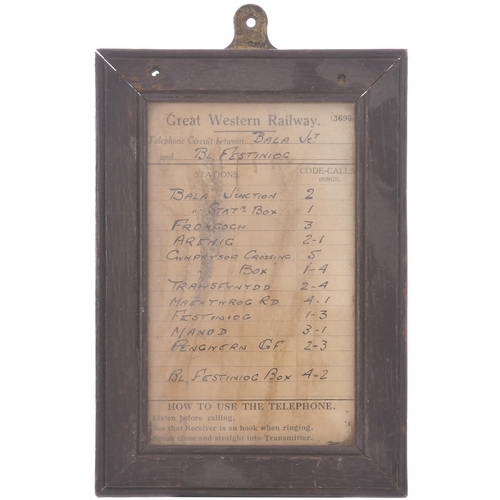 Great Western Railway. (3696)
Telephone Circuit between BALA JCT
and BL FESTINIOG
STATIONS. CODE-CALLS
(RINGS).
BALA JUNCTION 2
" STATN BOX 1
FRONGOCH 3
ARENIG 2-1
CWMPRYSOR CROSSING 5
BOX 1-4
TRAWSFYNYDD 2-4
MAENTWROG RD 4-1
FESTINIOG 1-3
MANOD 3-1
PENGWERN G.F. 2-3
BL FESTINIOG BOX 4-2
HOW TO USE THE TELEPHONE.
Listen before calling,
See that Receiver is on hook when ringing.
Speak close and straight into Transmitter.